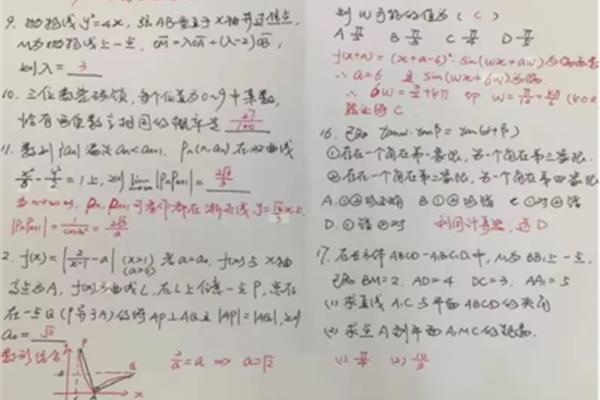 9. 抛物线 y²=4x, 弦AB垂直于x轴并过焦点,
M为抛物线上一点, OM=λOA+(λ-2)OB,
则λ= 3
10. 三位数密码锁, 每个位置为0~9中某数,
恰有两位数字相同的概率是 27/100
11. 数列{an}满足an<an+1, Pn(n,an)在双曲线
=1上, 则 lim |PnPn+1|= 2√3/3
当n→+∞时, PnPn+1可看作都在渐近线y=√3/3 x上
|PnPn+1|= = 2√3/3
2. f(x)=|2/(x-1) -a| (x>1) (a>0) 若a=a₀, f(x)与x轴
交点为A, f(x)为曲线L, 在L上任意一点P, 总存在
在一点Q(P异于A)使得AP⊥AQ且|AP|=|AQ|, 则
a₀= √2
数形结合
2/a=a ⇒ a=√2
P
A
Q
x
则W可能的值为 ( C )
A. B. C. D.
f(x+a)=(x+a-6)²·sin(wx+aw)为偶函数
∴ a=6 且 sin(wx+6w)为偶
∴ 6w=π/2+kπ
验证得C
16. 已知 tanα·tanβ=tan(α+β)
①存在一个角在第一象限, 另一个角在第三象限.
②存在一个角在第二象限, 另一个角在第四象限
A. ①②均正确 B. ①②均错 C. ①对②错
D. ①错②对 利用计算器, 选D
17. 在长方体ABCD-A₁B₁C₁D₁中, M为BB₁上一点,
已知BM=2, AD=4 DC=3, AA₁=5
(1) 求直线A₁C与平面ABCD的夹角
(2) 求点A到平面A₁MC的距离.
(1) π/4 (2) 10/3